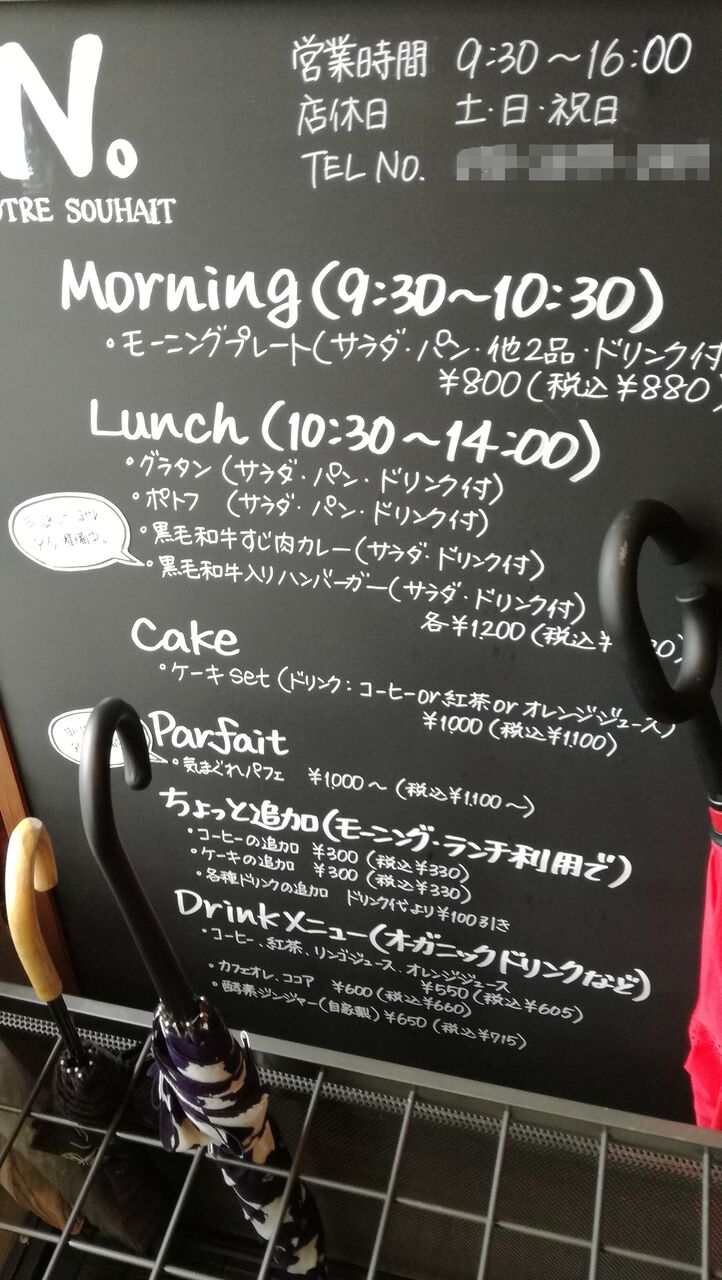 N.
OTRE SOUHAIT
営業時間 9:30〜16:00
店休日 土・日・祝日
TEL NO.
Morning(9:30〜10:30)
・モーニングプレート(サラダ・パン・他2品・ドリンク付
¥800(税込¥880)
Lunch(10:30〜14:00)
・グラタン(サラダ・パン・ドリンク付)
・ポトフ(サラダ・パン・ドリンク付)
・黒毛和牛すじ肉カレー(サラダ・ドリンク付)
・黒毛和牛入りハンバーガー(サラダ・ドリンク付)
各¥1200(税込¥
Cake
・ケーキset(ドリンク:コーヒーor紅茶orオレンジジュース)
¥1000(税込¥1,100)
Parfait
・気まぐれパフェ ¥1,000〜(税込¥1,100〜)
ちょっと追加(モーニング・ランチ利用で)
・コーヒーの追加 ¥300(税込¥330)
・ケーキの追加 ¥300(税込¥330)
・各種ドリンクの追加 ドリンク代より¥100引き
Drinkメニュー(オーガニックドリンクなど)
・コーヒー、紅茶、リンゴジュース、オレンジジュース
¥550(税込¥605)
・カフェオレ、ココア ¥600(税込¥660)
・酵素ジンジャー(自家製)¥650(税込¥715)